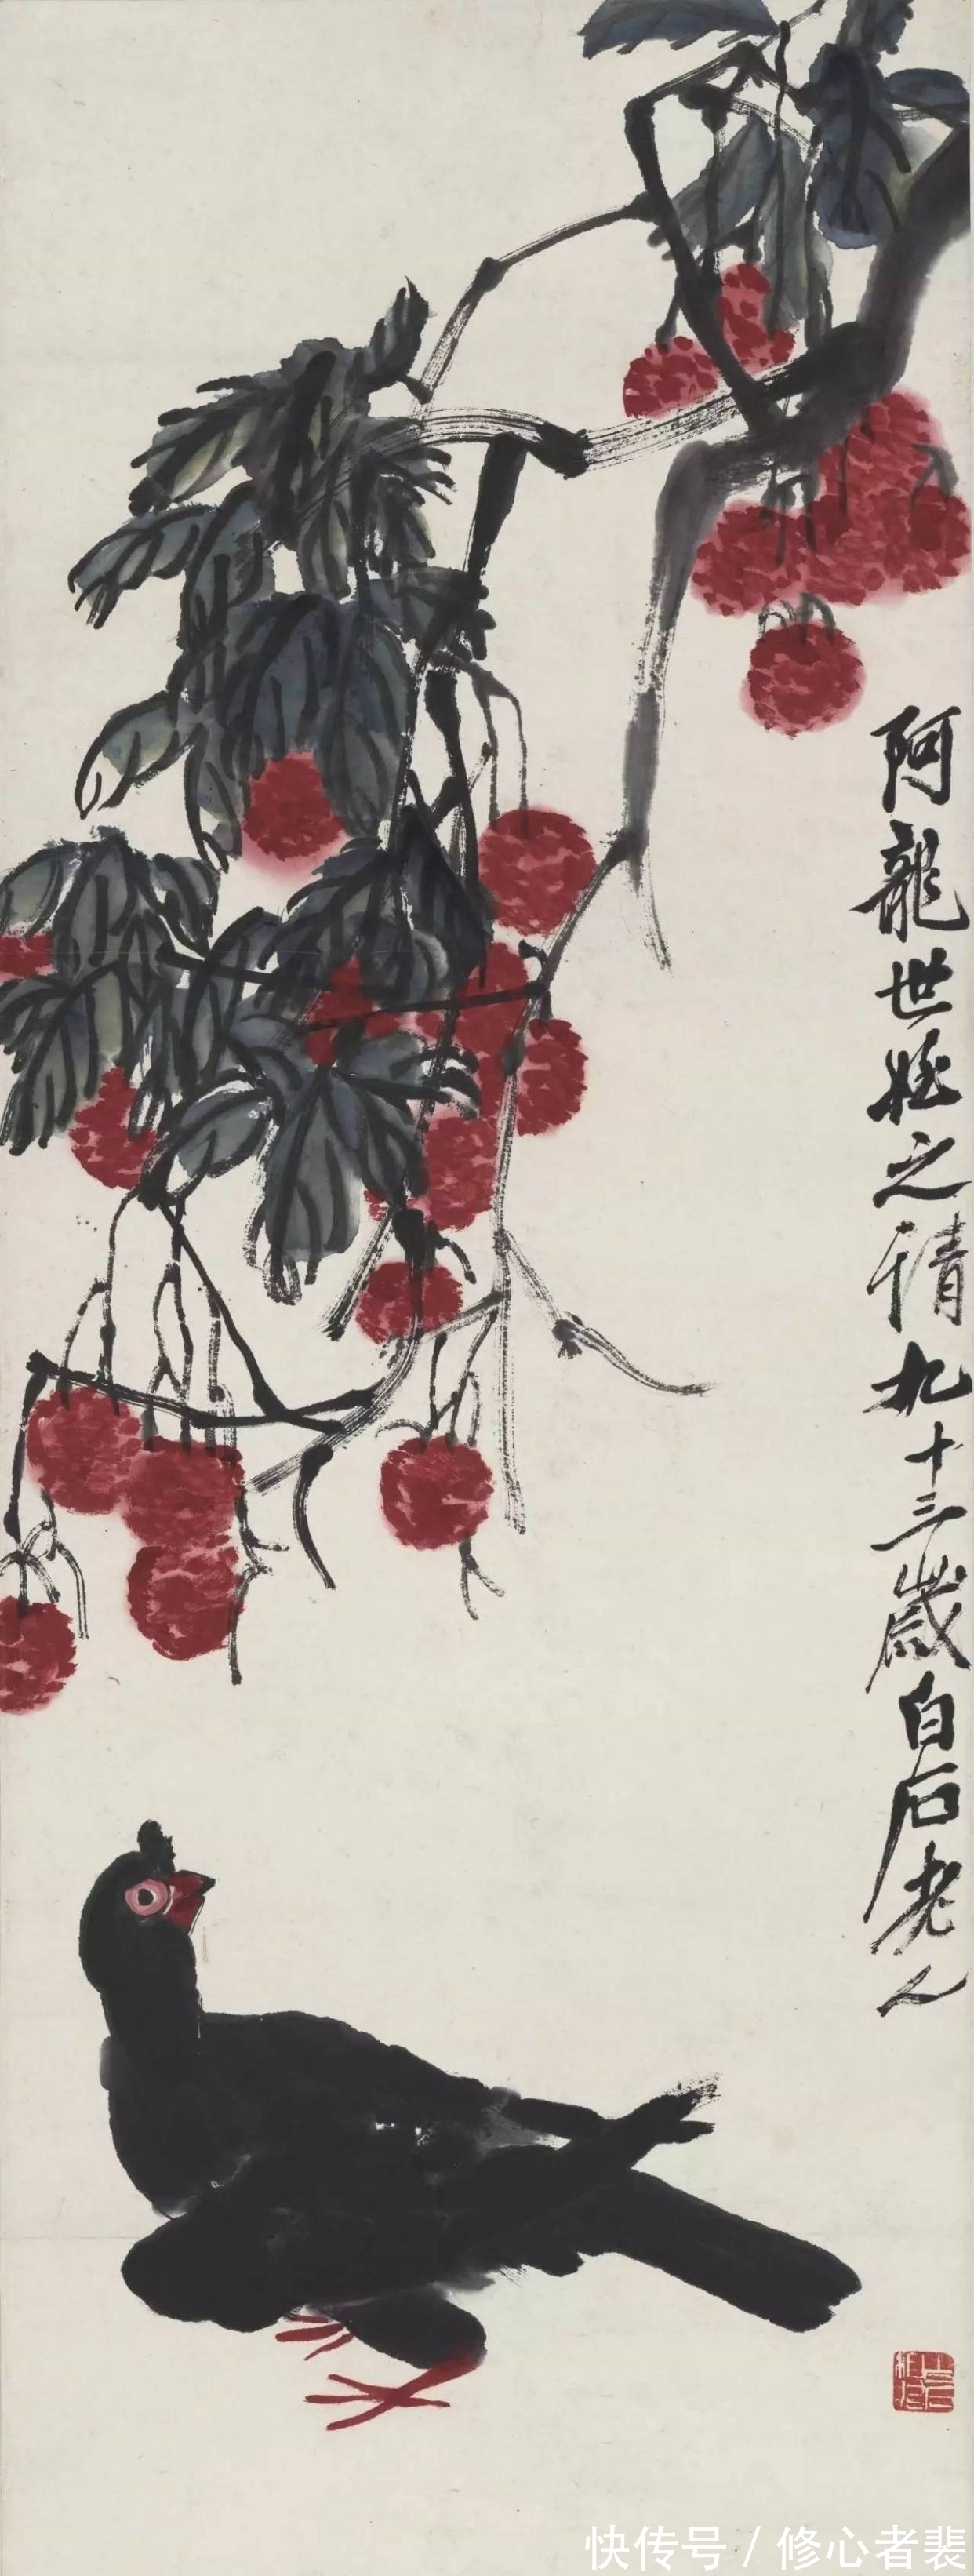 阿龍世姪之清九十三歲白石老人
快传号 / 修心者裴